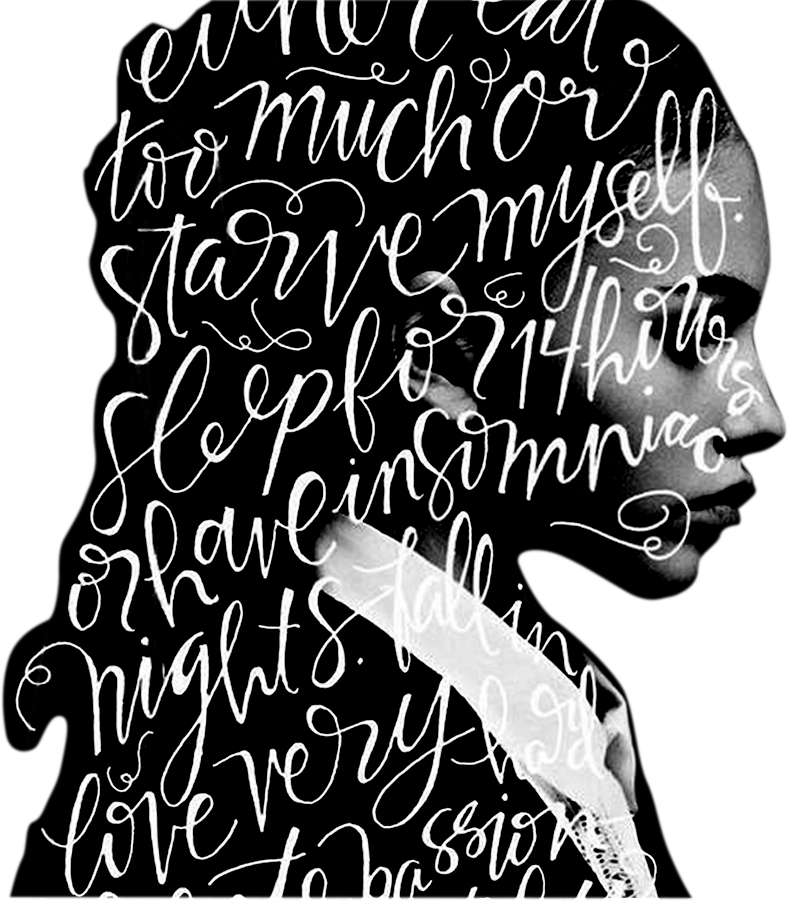 either eat
too much or
starve myself.
sleep for 14 hours
or have insomniac
nights. fall in
love very hard
passion